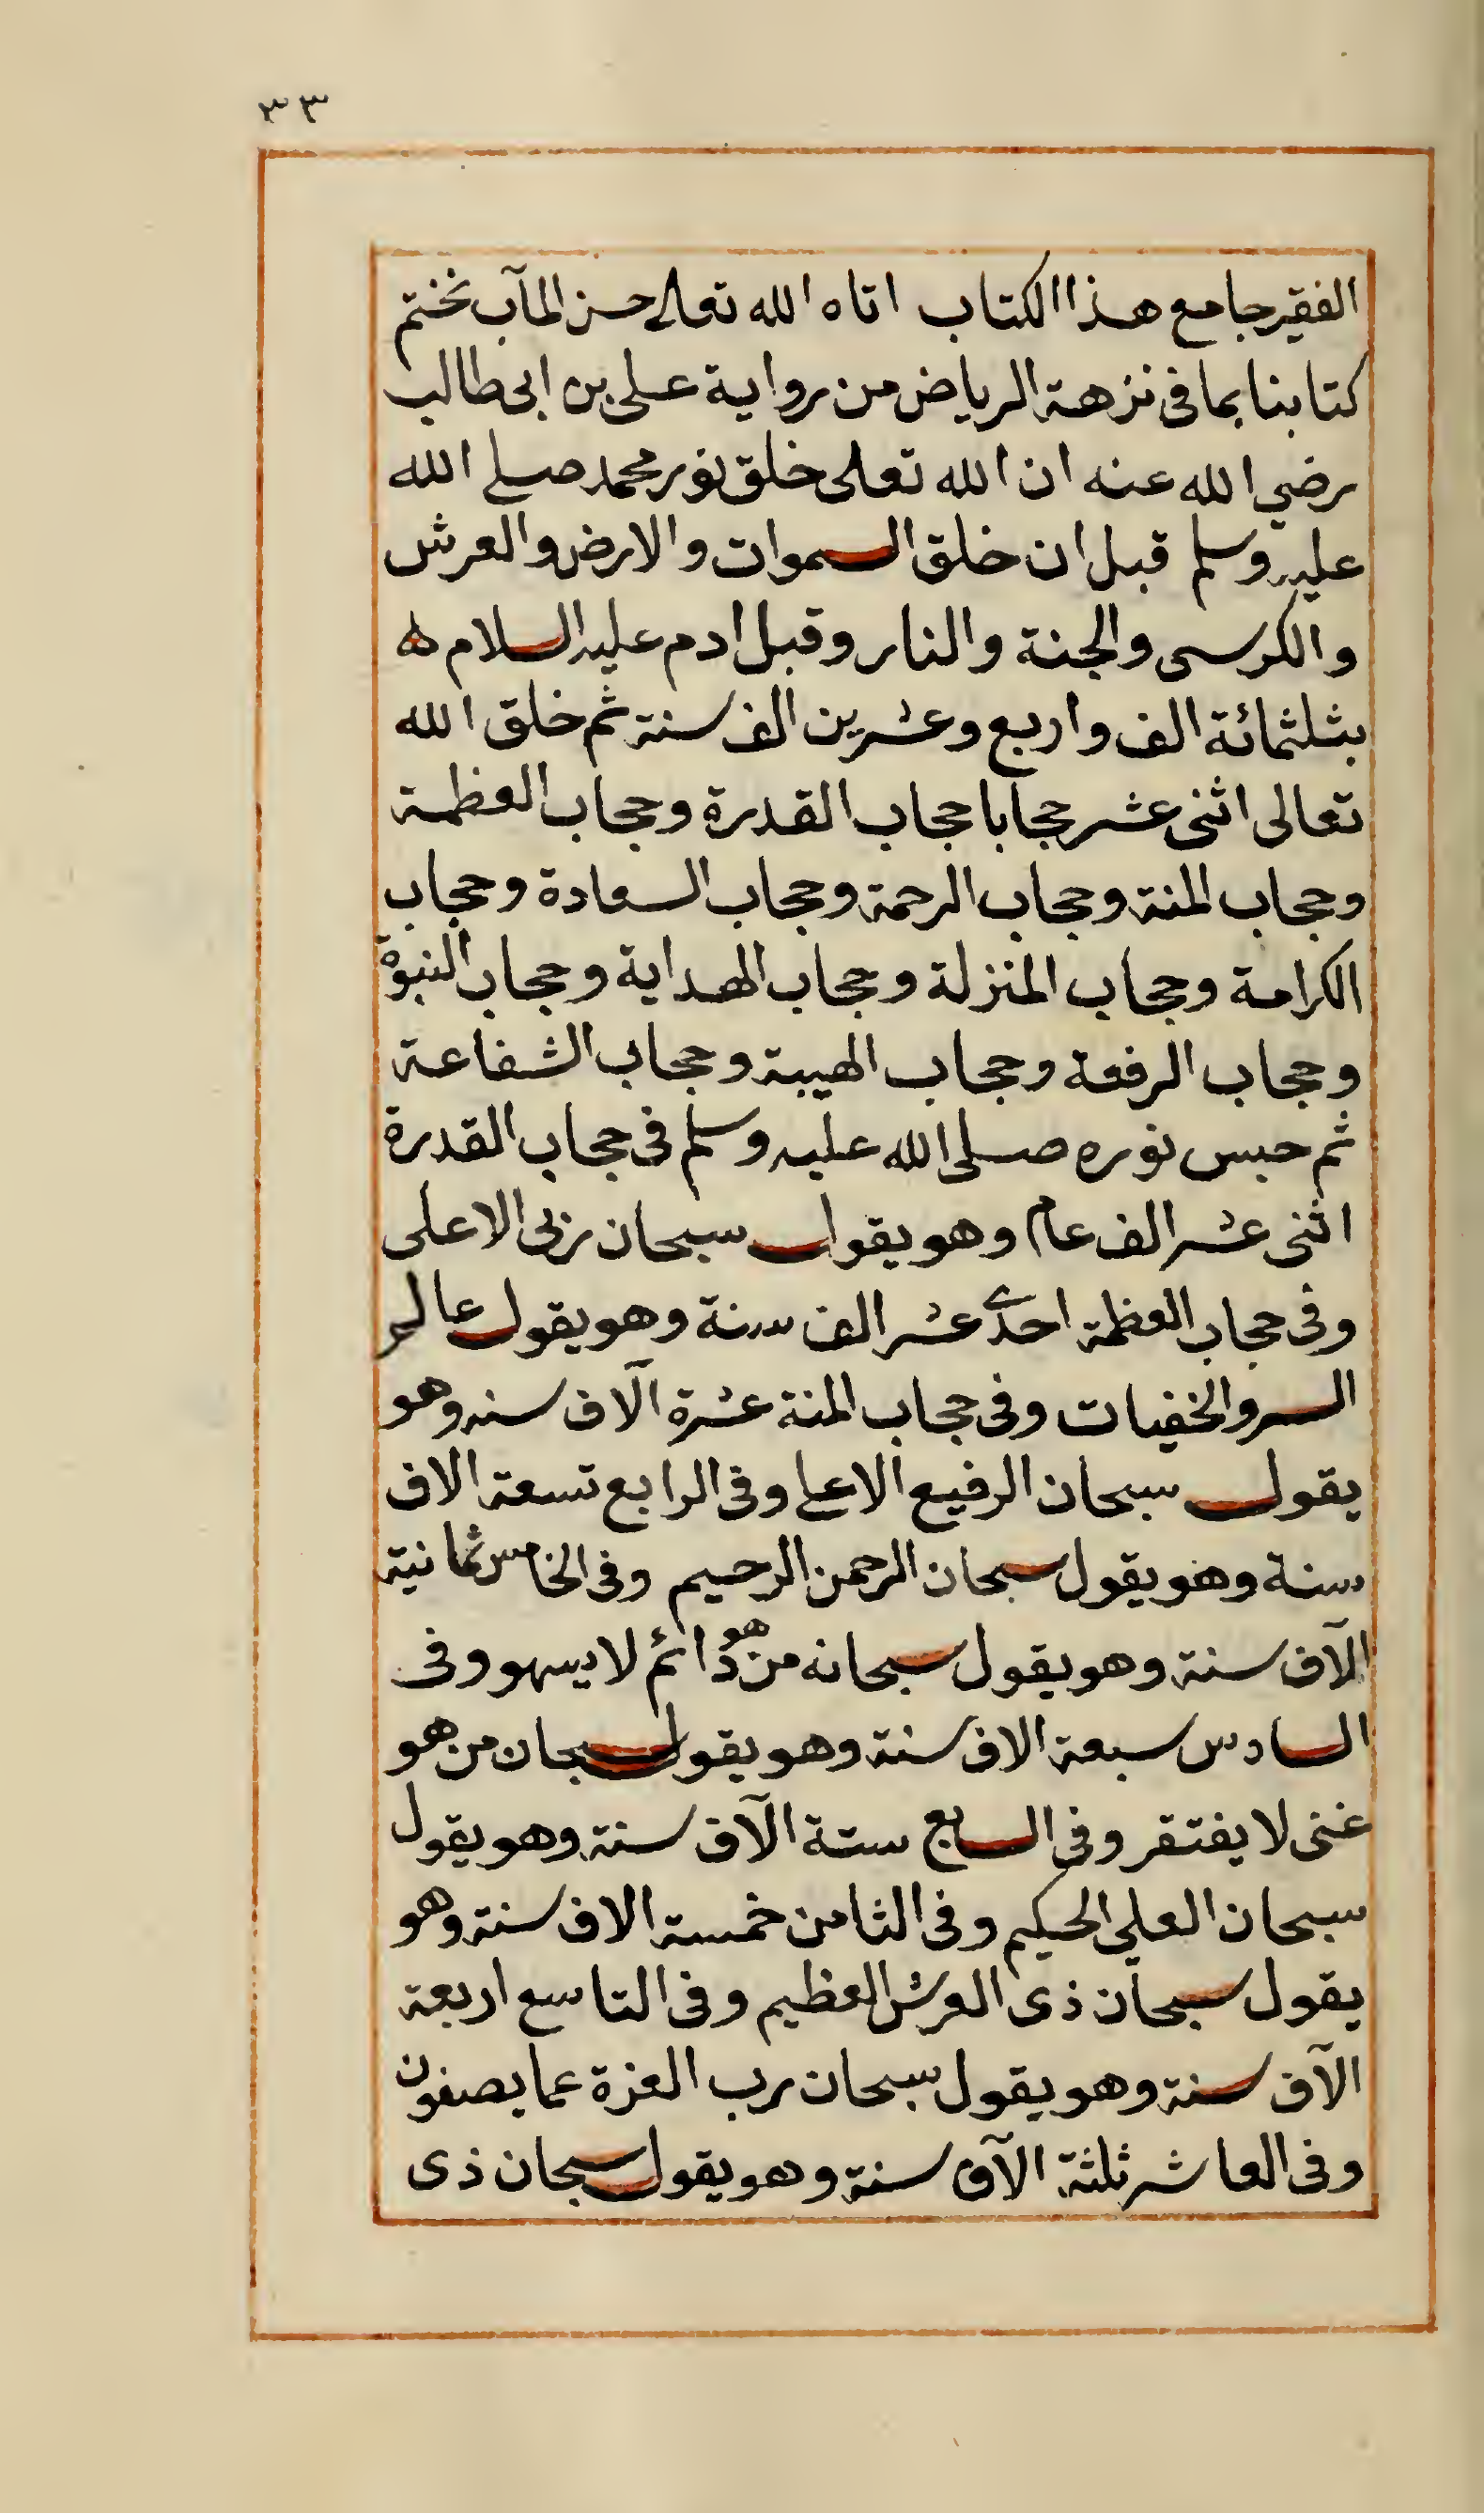 ٣٣
الفقير جامع هذا الكتاب اتاه الله تعالى حسن المآب نختم
كتابنا بما فى نزهة الرياض من رواية على بن ابى طالب
رضي الله عنه ان الله تعلى خلق نور محمد صلى الله
عليه وسلم قبل ان خلق السموات والارض والعرش
والكرسى والجنة والنار وقبل ادم عليه السلام ه
بثلثمائة الف واربع وعشرين الف سنة ثم خلق الله
تعالى اثنى عشر حجابا حجاب القدرة وحجاب العظمة
وحجاب المنة وحجاب الرحمة وحجاب السعادة وحجاب
الكرامة وحجاب المنزلة وحجاب الهداية وحجاب النبوة
وحجاب الرفعة وحجاب الهيبة وحجاب الشفاعة
ثم حبس نوره صلى الله عليه وسلم فى حجاب القدرة
اثنى عشر الف عام وهو يقول سبحان ربى الاعلى
وفى حجاب العظمة احدى عشر الف سنة وهو يقول عالم
السر والخفيات وفى حجاب المنة عشرة آلاف سنه وهو
يقول سبحان الرفيع الاعلى وفى الرابع تسعة الاف
سنة وهو يقول سبحان الرحمن الرحيم وفى الخامس ثمانية
آلاف سنة وهو يقول سبحانه من هو دائم لا يسهو وفى
السادس سبعة الاف سنة وهو يقول سبحان من هو
غنى لا يفتقر وفى السابع ستة آلاف سنة وهو يقول
سبحان العلي الحكيم وفى الثامن خمسة الاف سنة وهو
يقول سبحان ذى العرش العظيم وفى التاسع اربعة
آلاف سنة وهو يقول سبحان رب العزة عما يصفون
وفى العاشر ثلثة آلاف سنة وهو يقول سبحان ذى